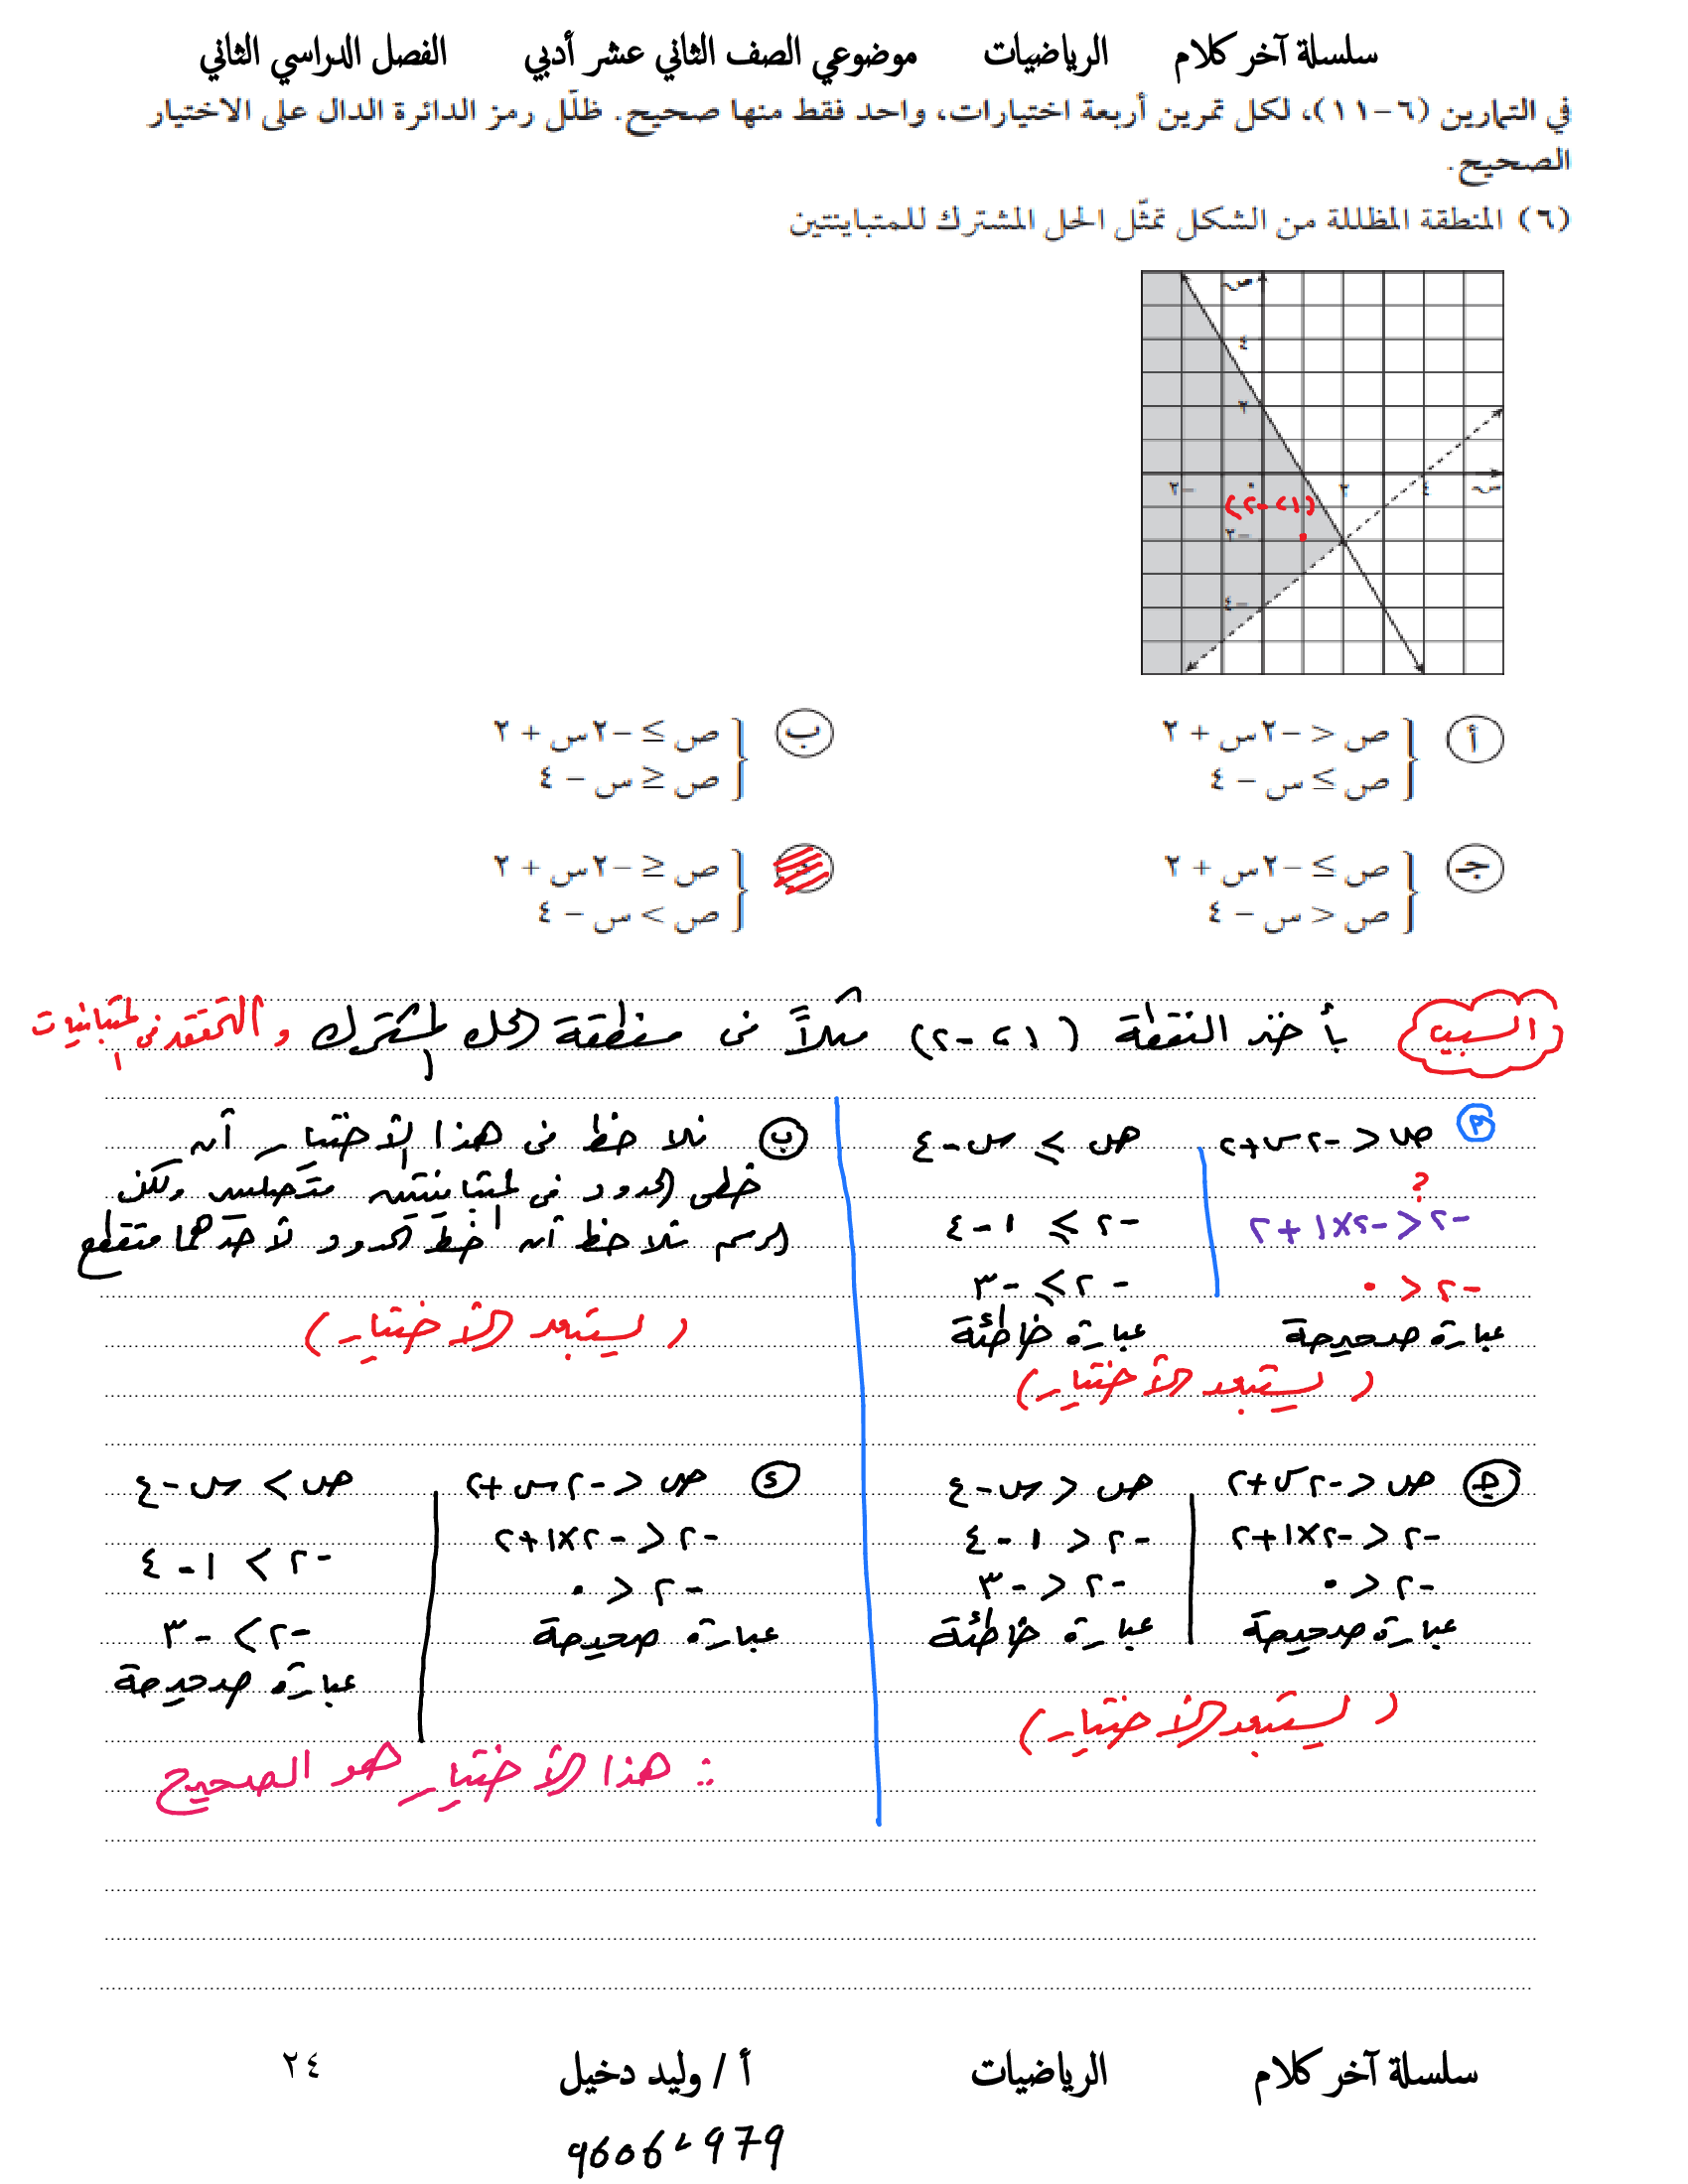 سلسلة آخر كلام الرياضيات موضوعي الصف الثاني عشر أدبي الفصل الدراسي الثاني
في التمارين (٦-١١)، لكل تمرين أربعة اختيارات، واحد فقط منها صحيح. ظلّل رمز الدائرة الدال على الاختيار
الصحيح.
(٦) المنطقة المظللة من الشكل تمثّل الحل المشترك للمتباينتين
ص
٤
٢
-٢ ٠ ٢ ٤ س
(١، -٢)
-٢
-٤
أ ص < -٢س + ٢
ص ≤ س - ٤
ب ص ≤ -٢س + ٢
ص ≥ س - ٤
جـ ص ≤ -٢س + ٢
ص < س - ٤
ص ≥ -٢س + ٢
ص > س - ٤
السبب بأخذ النقطة (١، -٢) مثلاً في منطقة الحل المشترك والتحقق في المتباينات
أ ص < -٢س+٢ ص ≤ س-٤
؟
-٢ < -٢×١+٢ -٢ ≤ ١-٤
-٢ < ٠ -٢ ≤ -٣
عبارة صحيحة عبارة خاطئة
(يستبعد الأختيار)
ب نلاحظ في هذا الأختيار أن
خطي الحدود في المتباينتين متصلين ولكن
الرسم نلاحظ أن خط الحدود لأحدهما متقطع
(يستبعد الأختيار)
جـ ص < -٢س+٢ ص < س-٤
-٢ < -٢×١+٢ -٢ < ١-٤
-٢ < ٠ -٢ < -٣
عبارة صحيحة عبارة خاطئة
(يستبعد الأختيار)
د ص < -٢س+٢ ص > س-٤
-٢ < -٢×١+٢ -٢ > ١-٤
-٢ < ٠ -٢ > -٣
عبارة صحيحة عبارة صحيحة
∴ هذا الأختيار هو الصحيح
سلسلة آخر كلام الرياضيات أ / وليد دخيل ٢٤